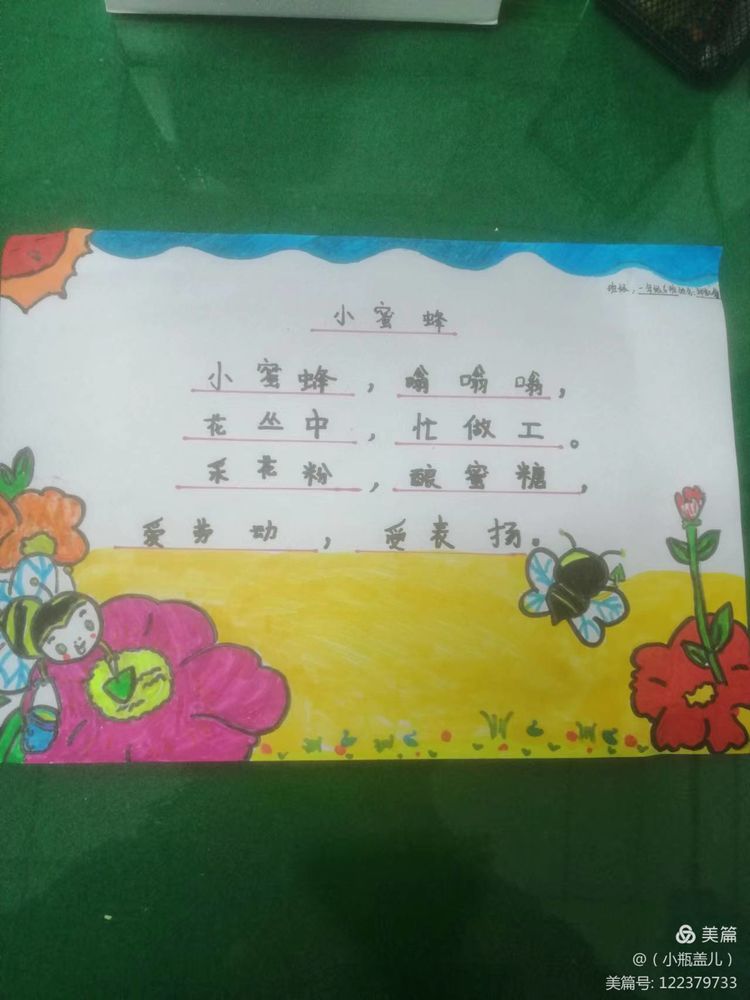 小蜜蜂
小蜜蜂，嗡嗡嗡，
花丛中，忙做工。
采花粉，酿蜜糖，
爱劳动，受表扬。
美篇
@（小瓶盖儿）
美篇号: 122379733